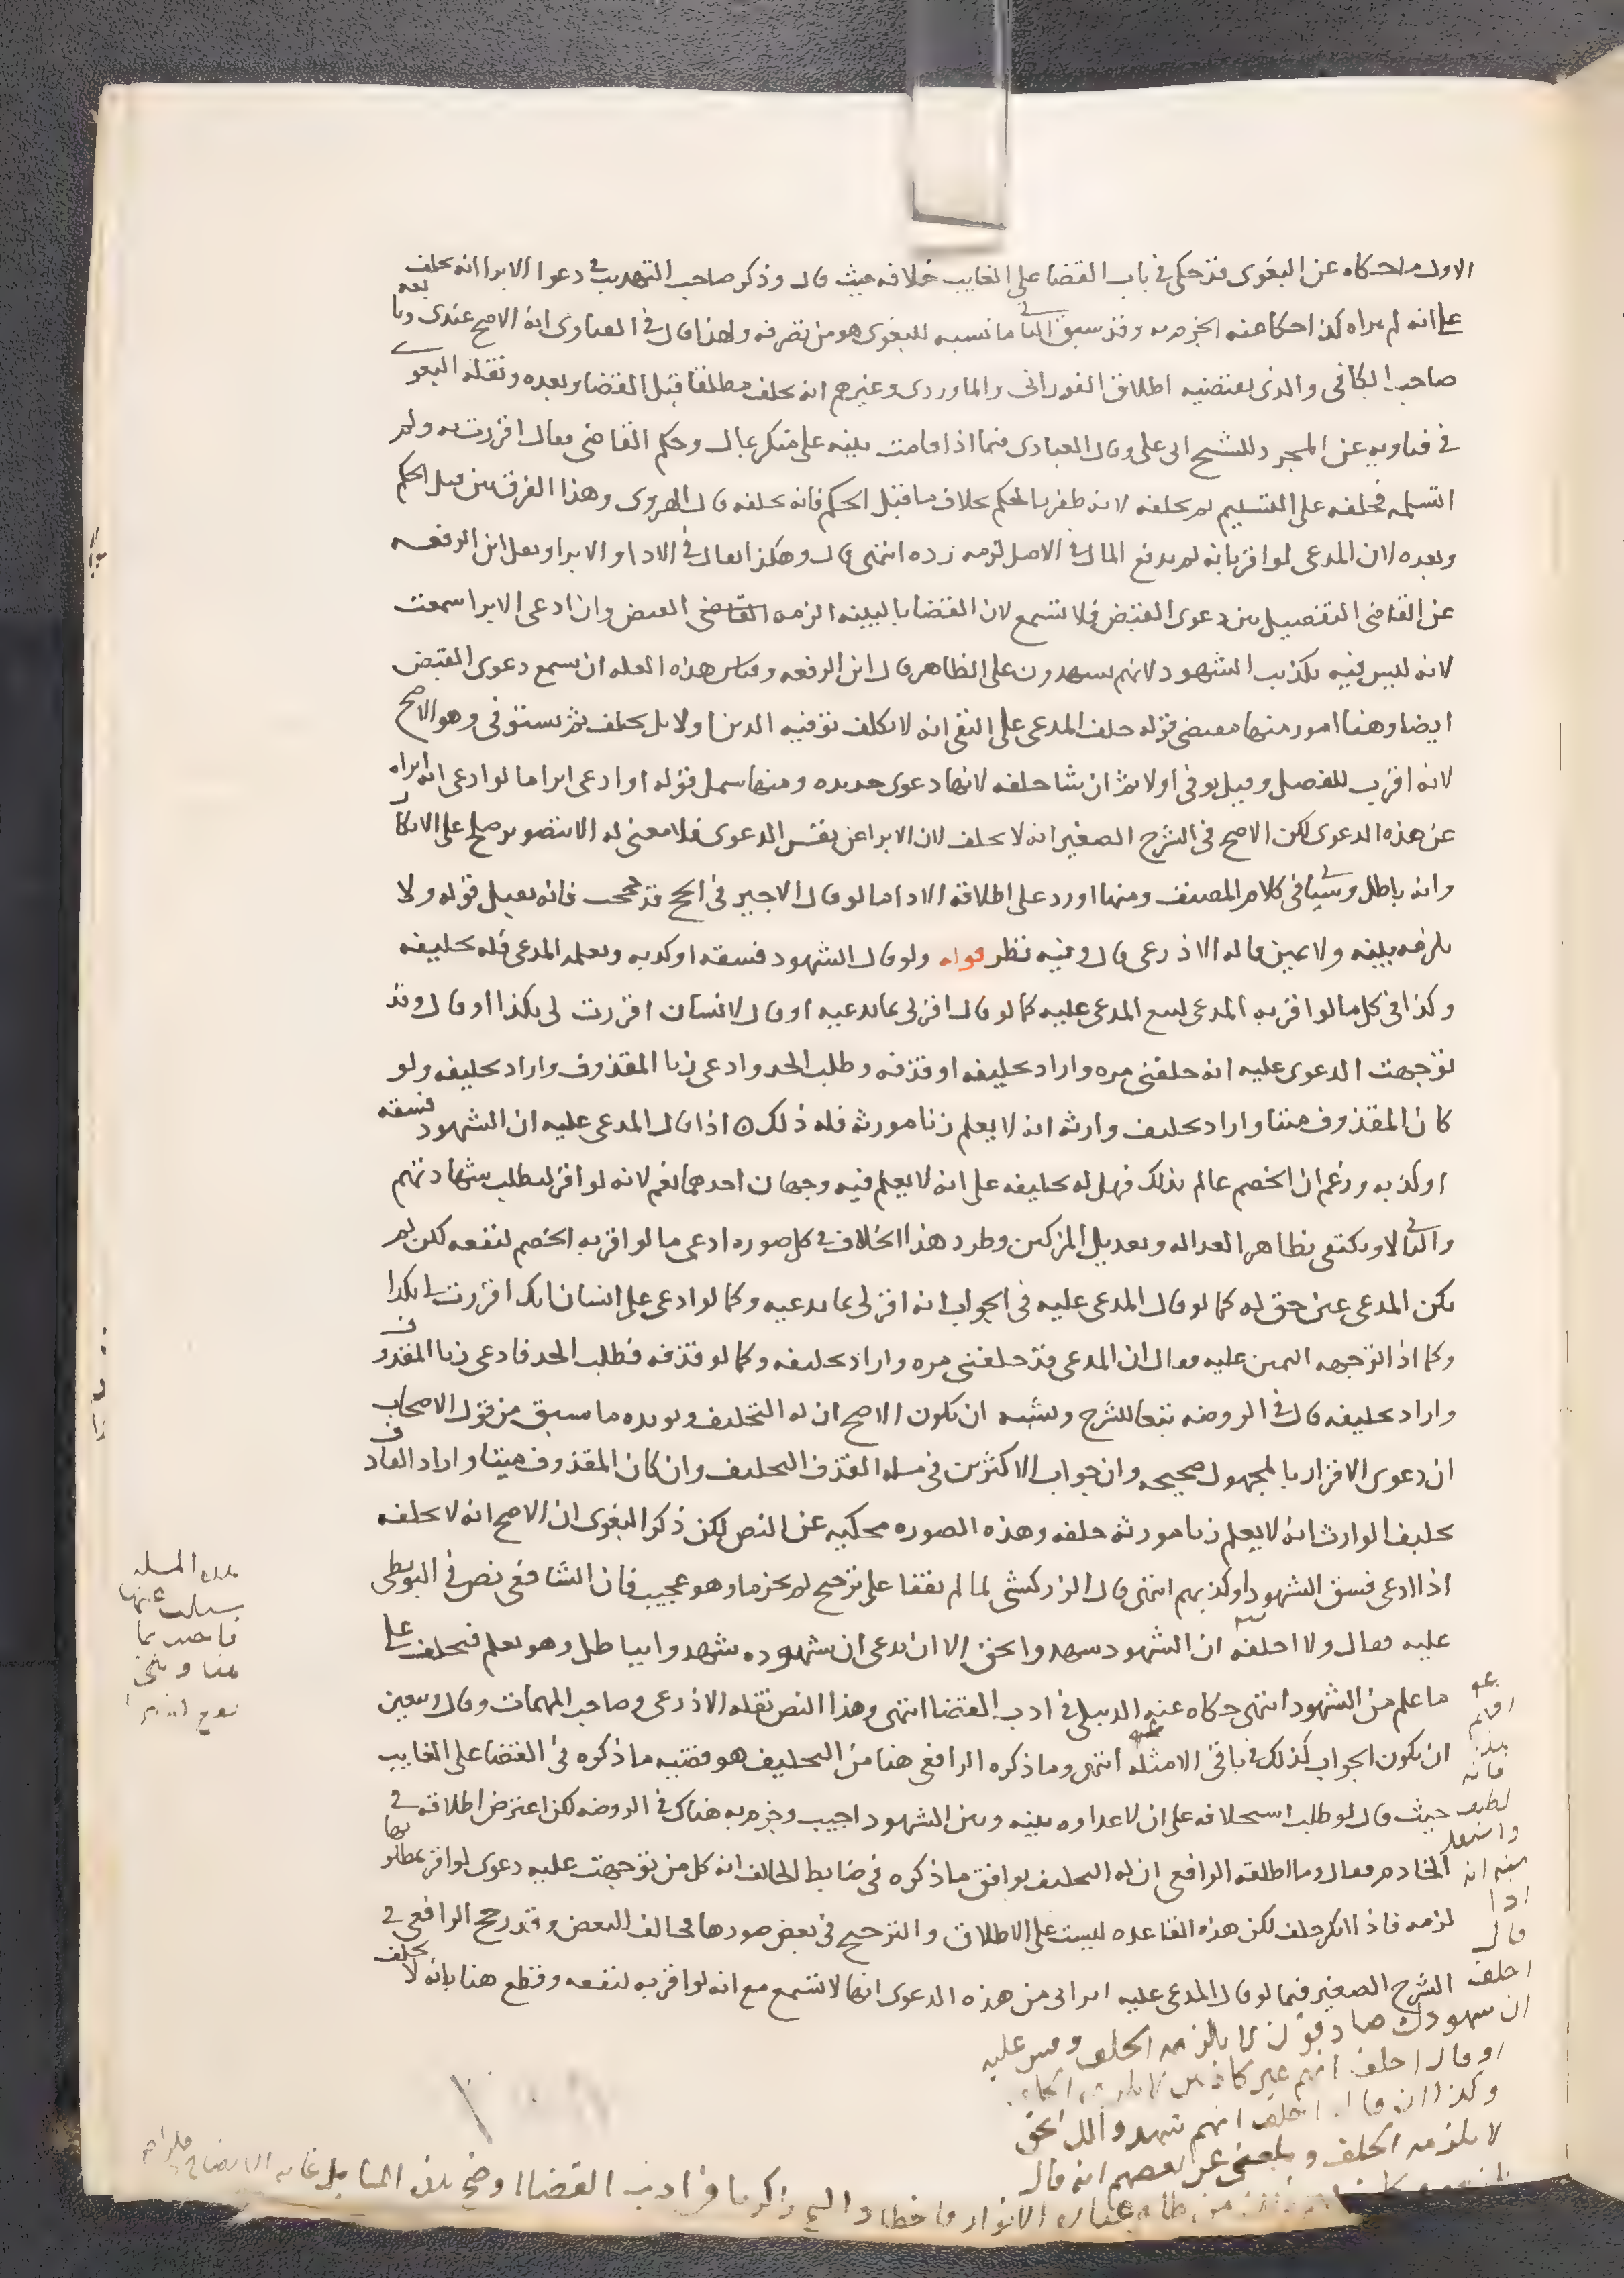 الاول ما حكاه عن البغوى قد حكى فى باب القضا على الغايب خلافه حيث قال وذكر صاحب التهذيب فى دعوا الابرا انه يحلف
على انه لم يبراه كذا حكا عنه الجزم به وقد سبق انما نسبه للبغوى هو من تصرفه ولهذا قال فى الفتاوى انه الاصح عندى وتابعه
صاحب الكافى والذى يقتضيه اطلاق الفورانى والماوردى وغيرهم انه يحلف مطلقا قبل القضا وبعده ونقله البغوى
فى فتاويه عن المجرد للشيح ابى على وقال العبادى فيما اذا قامت بينه على منكر بمال وحكم القاضى فقال اقررت به ولم
اتسلمه فحلفه على التسليم لم يحلفه لانه ظفر بالحكم بخلاف ما قبل الحكم فانه يحلفه قال الهروى وهذا الفرق بين قبل الحكم
وبعده لان المدعى لو اقر بانه لم يدفع المال فى الاصل لزمه رده انتهى قال وهكذا يقال فى الادا والابرا ونقل ابن الرفعه
عن القاضى التفصيل بين دعوى القبض فلا تسمع لان القضا بالبينه الزمه القبض وان ادعى الابرا سمعت
لانه ليس فيه تكذيب الشهود لانهم يشهدون على الظاهر قال ابن الرفعه وقياس هذه العله ان يسمع دعوى القبض
ايضا وهنا امور منها مقتضى قوله حلف المدعى على النفى انه لا يكلف توفيه الدين اولا بل يحلف ثم يستوفى وهو الاصح
لانه اقرب للفصل وقيل يوفى اولا ثم ان شا حلفه لانها دعوى جديده ومنها يشمل قوله او ادعى ابرا ما لو ادعى انه ابراه
عن هذه الدعوى لكن الاصح فى الشرح الصغير انه لا يحلف لان الابرا عن نفس الدعوى فلا معنى له الا بتصوير صلح على الانكار
وانه باطل وسياتى فى كلام المصنف ومنها اورد على اطلاقه الادا ما لو قال الاجير فى الحج قد حججت فانه يقبل قوله ولا
يلزمه بينه ولا يمين قاله الاذرعى قال وفيه نظر قوله ولو قال الشهود فسقه او كذبه ويعلمه المدعى فله تحليفه
وكذا فى كل ما لو اقر به المدعى لنفع المدعى عليه كما لو قال اقر لى بما يدعيه او قال لانسان اقررت لى بكذا او قال وقد
توجهت الدعوى عليه انه حلفنى مره واراد تحليفه او قذفه وطلب الحد وادعى زنا المقذوف واراد تحليفه ولو
كان المقذوف ميتا واراد تحليف وارثه انه لا يعلم زنا مورثه فله ذلك ه اذا قال المدعى عليه ان الشهود فسقه
او كذبه وزعم ان الخصم عالم بذلك فهل له تحليفه على انه لا يعلم فيه وجهان احدهما نعم لانه لو اقر له بطلت شهادتهم
والثانى لا ويكتفى بظاهر العداله وتعديل المزكين وطرد هذا الخلاف فى كل صوره ادعى ما لو اقر به الخصم لنفعه لكن لم
يكن المدعى عين حق له كما لو قال المدعى عليه فى الجواب انه اقر لى بما يدعيه وكما لو ادعى على انسان انك اقررت لى بكذا
وكما اذا توجهه اليمين عليه فقال ان المدعى قد حلفنى مره واراد تحليفه وكما لو قذفه فطلب الحد فادعى زنا المقذوف
واراد تحليفه قال فى الروضه تبعا للشرح ويشبه ان يكون الاصح ان له التحليف ويويده ما سبق من قول الاصحاب
ان دعوى الاقرار بالمجهول صحيحه وان جواب الاكثرين فى مسله القذف التحليف وان كان المقذوف ميتا واراد القاذف
تحليف الوارث انه لا يعلم زنا مورثه حلفه وهذه الصوره محكيه عن النص لكن ذكر البغوى ان الاصح انه لا يحلفه
اذا ادعى فسق الشهود او كذبهم انتهى قال الزركشى لما لم يقفا على ترجيح لم يجزما وهو عجيب فان الشافعى نص فى البويطى
عليه فقال ولا احلفه ان الشهود شهدوا بحق الا ان يدعى ان شهوده شهدوا بباطل وهو يعلم فيحلف على
ما علم من الشهود انتهى حكاه عنه الدبيلى فى ادب القضا انتهى وهذا النص نقله الاذرعى وصاحب المهمات وقالا يتعين
ان يكون الجواب كذلك فى باقى الامثله انتهى وما ذكره الرافعى هنا من التحليف هو قضيه ما ذكره فى القضا على الغايب
حيث قال لو طلب استحلافه على ان لا عداوه بينه وبين الشهود اجيب وجزم به هناك فى الروضه لكن اعترض اطلاقه فى
الخادم فقال وما اطلقه الرافعى ان له التحليف يوافق ما ذكره فى ضابط الحالف انه كل من توجهت عليه دعوى لو اقر بمطلوبها
لزمه فاذا انكر حلف لكن هذه القاعده ليست على الاطلاق والترجيح فى بعض صورها يخالف البعض وقد رجح الرافعى فى
الشرح الصغير فيما لو قال المدعى عليه ابرانى من هذه الدعوى انها لا تسمع مع انه لو اقر به لنفعه وقطع هنا بانه لا يحلف
هذه المسله
سيلت عنها
اذا
قال
احلف
ان شهودك صادقون لا يلزمه الحلف وقس عليه
او قال احلف انهم غير كاذبين لا يلزمه الحلف
وكذا ان قال احلف انهم شهدوا لك بحق
لا يلزمه الحلف وبلغنى عن بعضهم انه قال